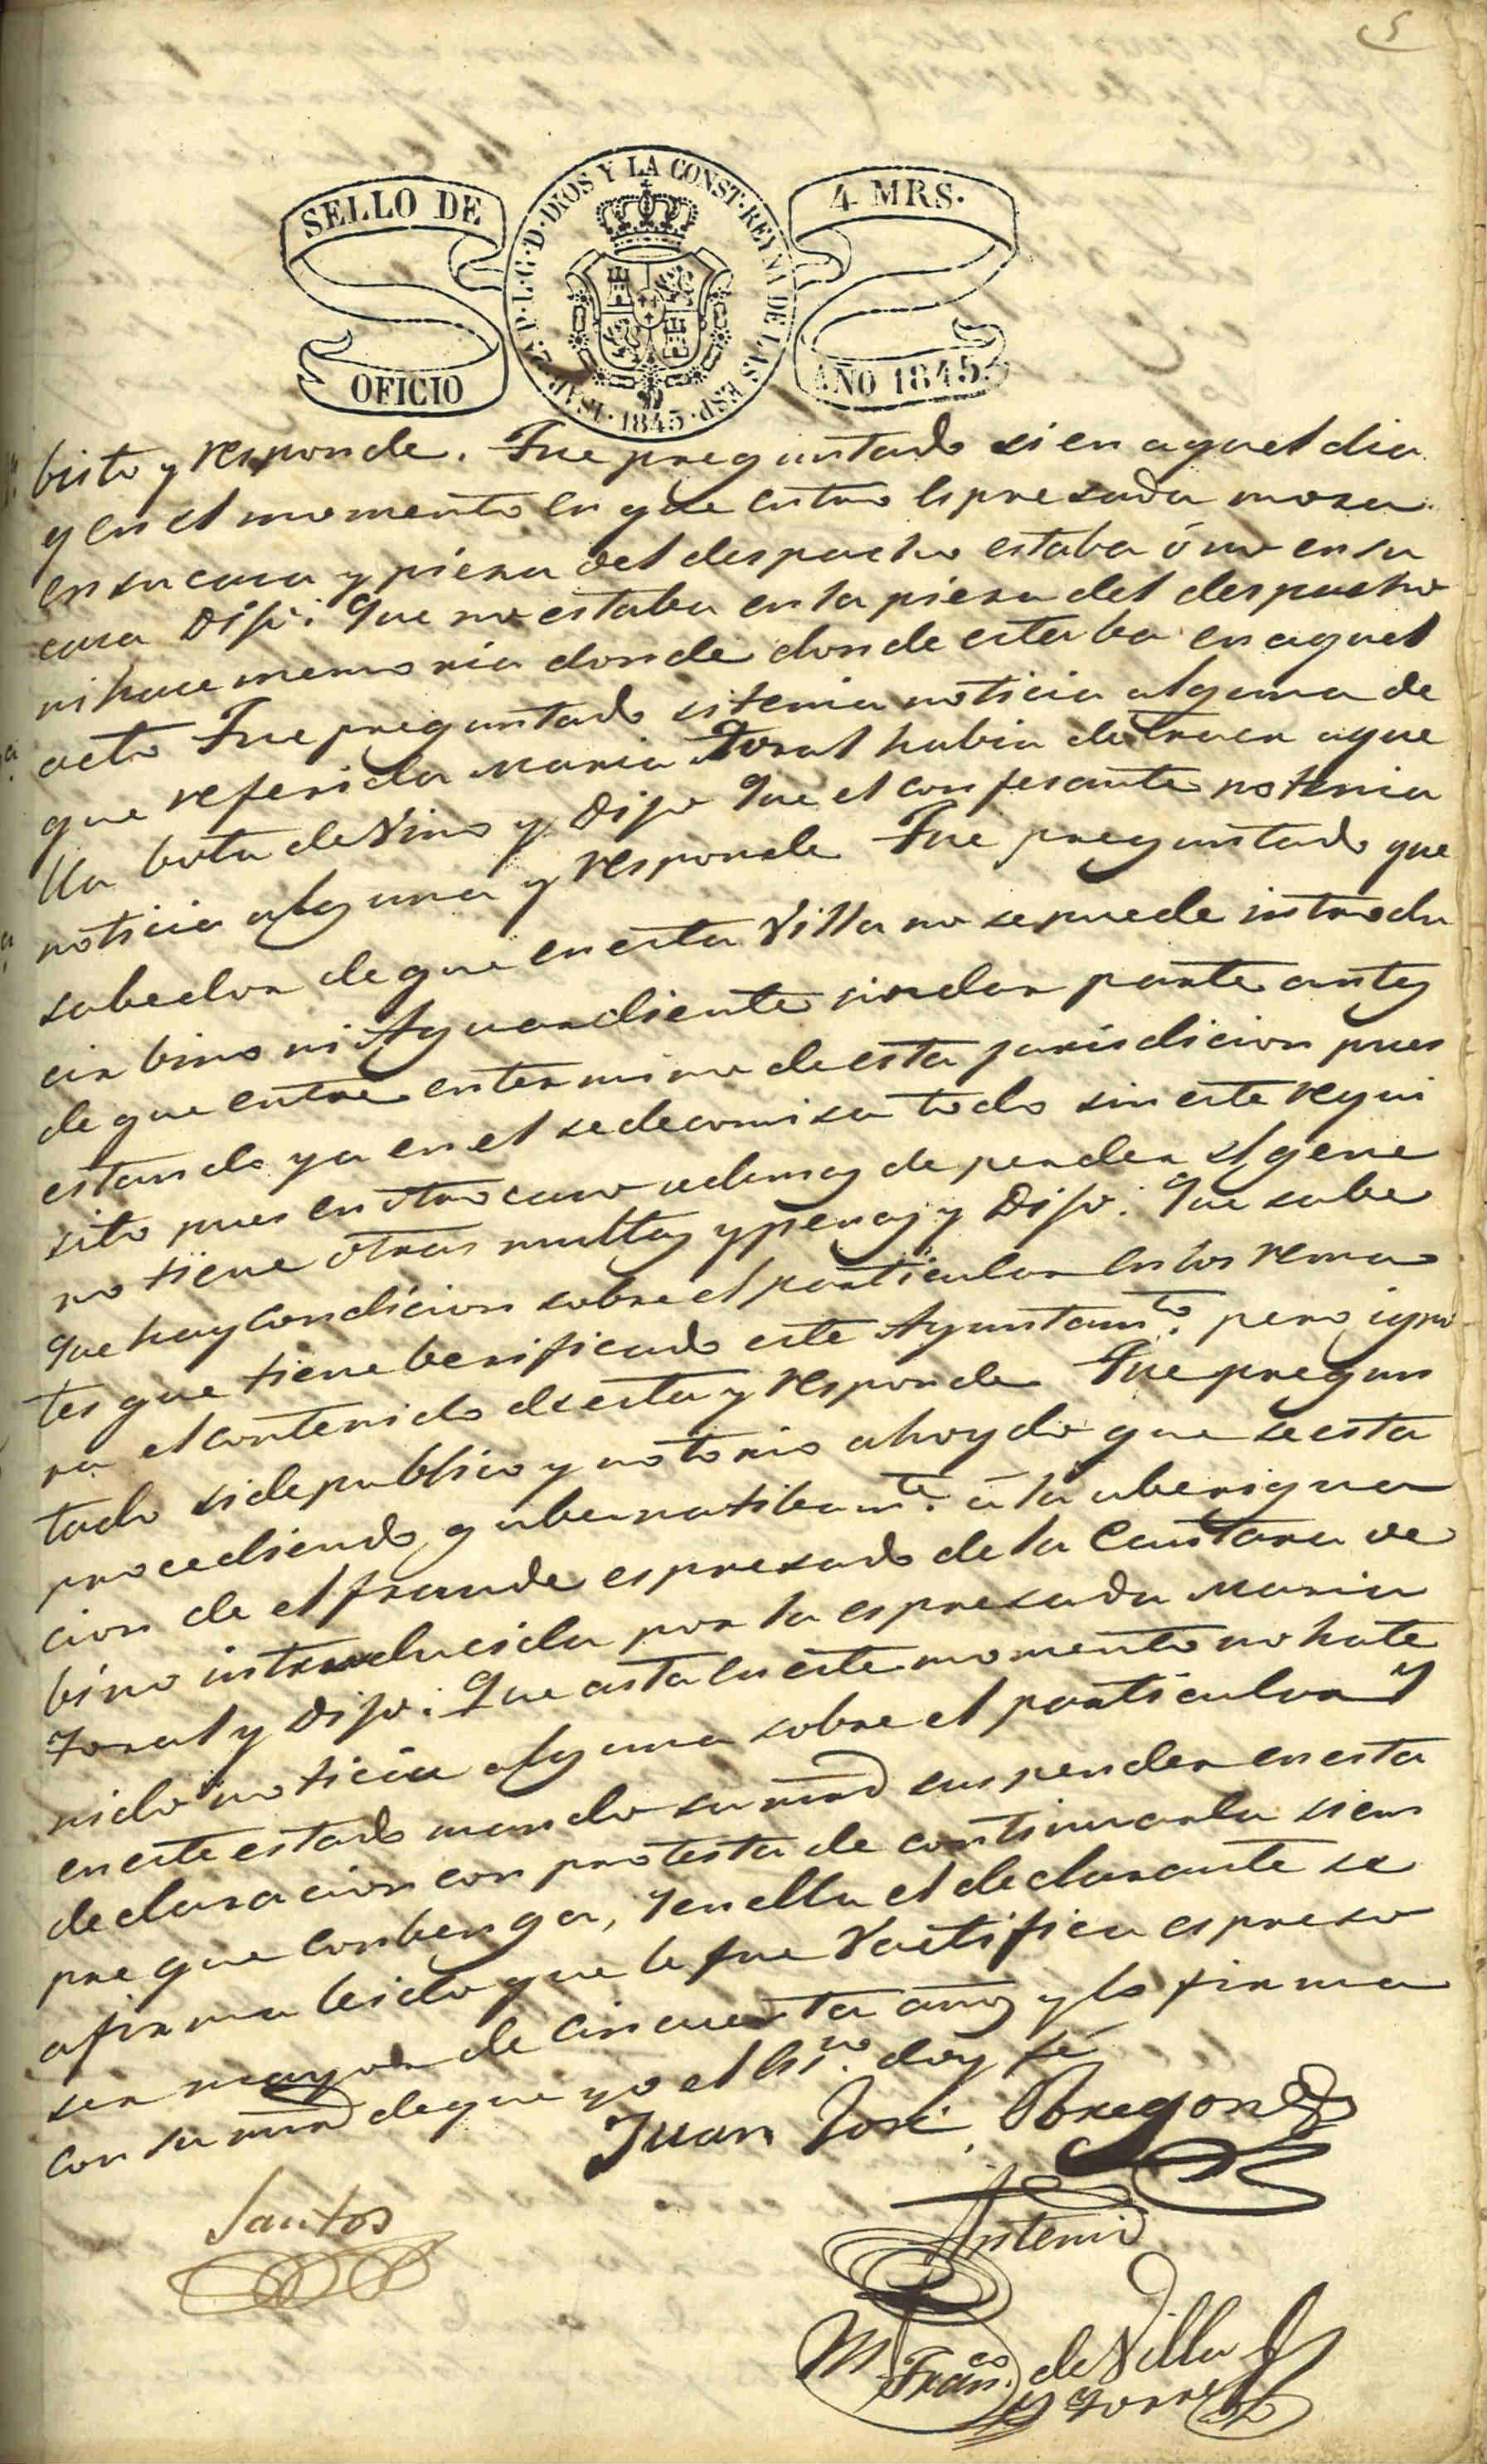 5
SELLO DE
OFICIO
ISAB. 2.ª P. L. G. D. DIOS Y LA CONST. REYNA DE LAS ESP. 1845.
4 MRS.
AÑO 1845.
bisto y responde. Fue preguntado si en aquel dia
y en el momento en que entro espresada moza
en su casa y pieza del despacho estaba ó no en su
casa Dijo: Que no estaba en la pieza del despacho
ni hace memoria donde donde estaba en aquel
acto Fue preguntado si tenia noticia alguna de
que referida Maria Toral habia de traer aque
lla bota de Vino y Dijo Que el confesante no tenia
noticia alguna y responde Fue preguntado que
sabedor de que en esta Villa no se puede introdu
cir bino ni Aguardiente sin dar parte antes
de que entre en termino de esta jurisdicion pues
estando ya en el se decomisa todo sin este requi
sito pues en otro caso ademas de perder el gene
ro tiene otras multas y penas y Dijo: Que sabe
que hay condicion sobre el particular en los rema
tes que tiene berificado este Ayuntamto. pero igno
ra el contenido de esta y responde Fue pregun
tado si de publico y notorio a hoydo que se esta
procediendo gubernatibamte. á la aberigua
cion de el fraude espresado de la Cantara de
bino introducida por la espresada Maria
Toral y Dijo: Que asta en este momento no ha te
nido noticia alguna sobre el particular Y
en este estado mando su mrd suspender en esta
declaracion con protesta de continuarla siem
pre que conbenga, y en ella el declarante se
afirma leido que le fue Ractifica espreso
ser mayor de cincuenta años y lo firma
con su mrd de que yo el Esno. doy fé
Juan José Obregon
Santos
Antemi
M Franco. de Villa
y Torre